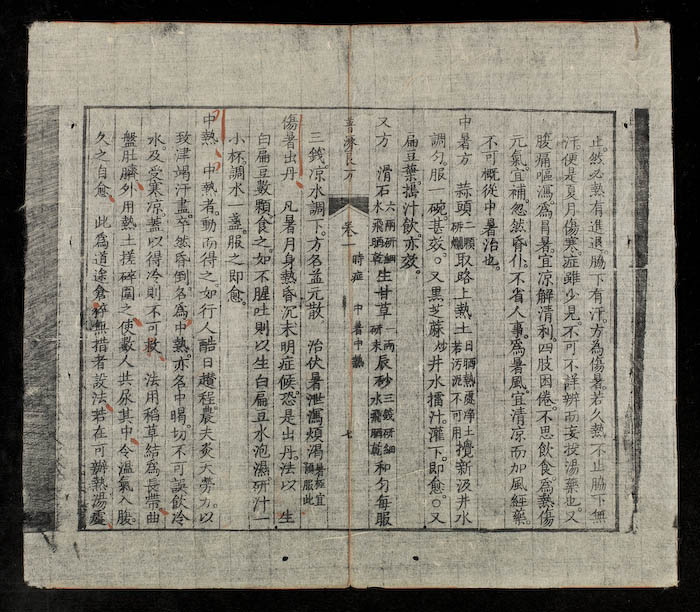 止。然必熱有進退。腸下有汗。方為傷暑。若久熱不止。腸下無
汗。便是夏月傷寒症。雖少見。不可不詳辨。而妄投湯藥也。又
腹痛嘔瀉。為冒暑。宜凉解清利。四肢困倦。不思飲食。為熱傷
元氣。宜補。忽然昏仆。不省人事。為暑風。宜清凉而加風經藥。
不可概從中暑治也。
中暑方 蒜頭二顆研爛取路上熱土日晒熱處淨土若污泥不可用攪新汲井水
調勻。服一碗甚效。〇又黑芝蔴炒井水擂汁。灌下。即愈。〇又
扁豆葉。搗汁飲亦效。
又方 滑石六兩研細水飛晒乾生甘草一兩研末辰砂三錢研細水飛晒乾和勻每服
普濟良方 卷一 時症 中暑中熱 七
三錢。凉水調下。方名益元散。 治伏暑泄瀉煩渴暑症宜預服此
傷暑出丹 凡暑月身熱昏沉。未明症候。恐是出丹。法以生
白扁豆數顆食之。如不腥吐。則以生白扁豆水泡濕研汁一
小杯調水一盞。服之即愈。
中熱 中熱者。動而得之。如行人酷日趲程。農夫炎天勞力。以
致津竭汗盡。卒然昏倒。名為中熱。亦名中暍。切不可誤飲冷
水及受寒凉。蓋以得冷則不可救。 法用稻草結為長帶曲
盤肚臍外。用熱土搓碎圍之。使數人共尿其中。令溫氣入腹。
久之自愈。 此為道途倉猝無措者設法。若在可辦熱湯處。